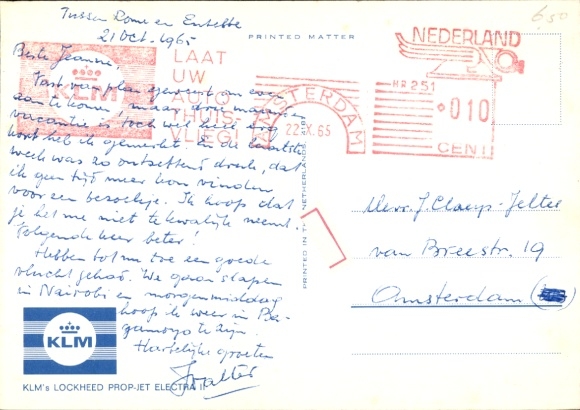 Tussen Rome en Entebbe
21 Oct. 1965
Beste Jeanne,
Vast van plan geweest om even
aan te komen, maar drie maanden
vacantie is toch wel heel erg
kort heb ik gemerkt. En de laatste
week was zo ontzettend druk, dat
ik geen tijd meer kon vinden
voor een bezoekje. Ik hoop dat
je het me niet te kwalijk neemt.
Volgende keer beter!
Hebben tot nu toe een goede
vlucht gehad. We gaan slapen
in Nairobi en morgenmiddag
hoop ik weer in Ba-
gamoyo te zijn.
Hartelijke groeten
KLM
KLM's LOCKHEED PROP-JET ELECTRA II
PRINTED MATTER
KLM
LAAT
UW
AUTO
THUIS-
VLIEG!
AMSTERDAM
22.X.65
NEDERLAND
HR 251
010
CENT
6.50
PRINTED IN THE NETHERLANDS
Mevr. J. Claeys-Jeltes
van Breestr. 19
Amsterdam